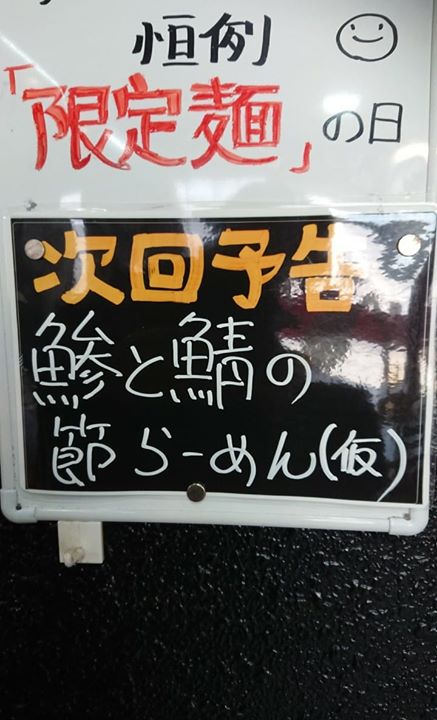 恒例
「限定麺」の日
次回予告
鯵と鯖の
節らーめん(仮)